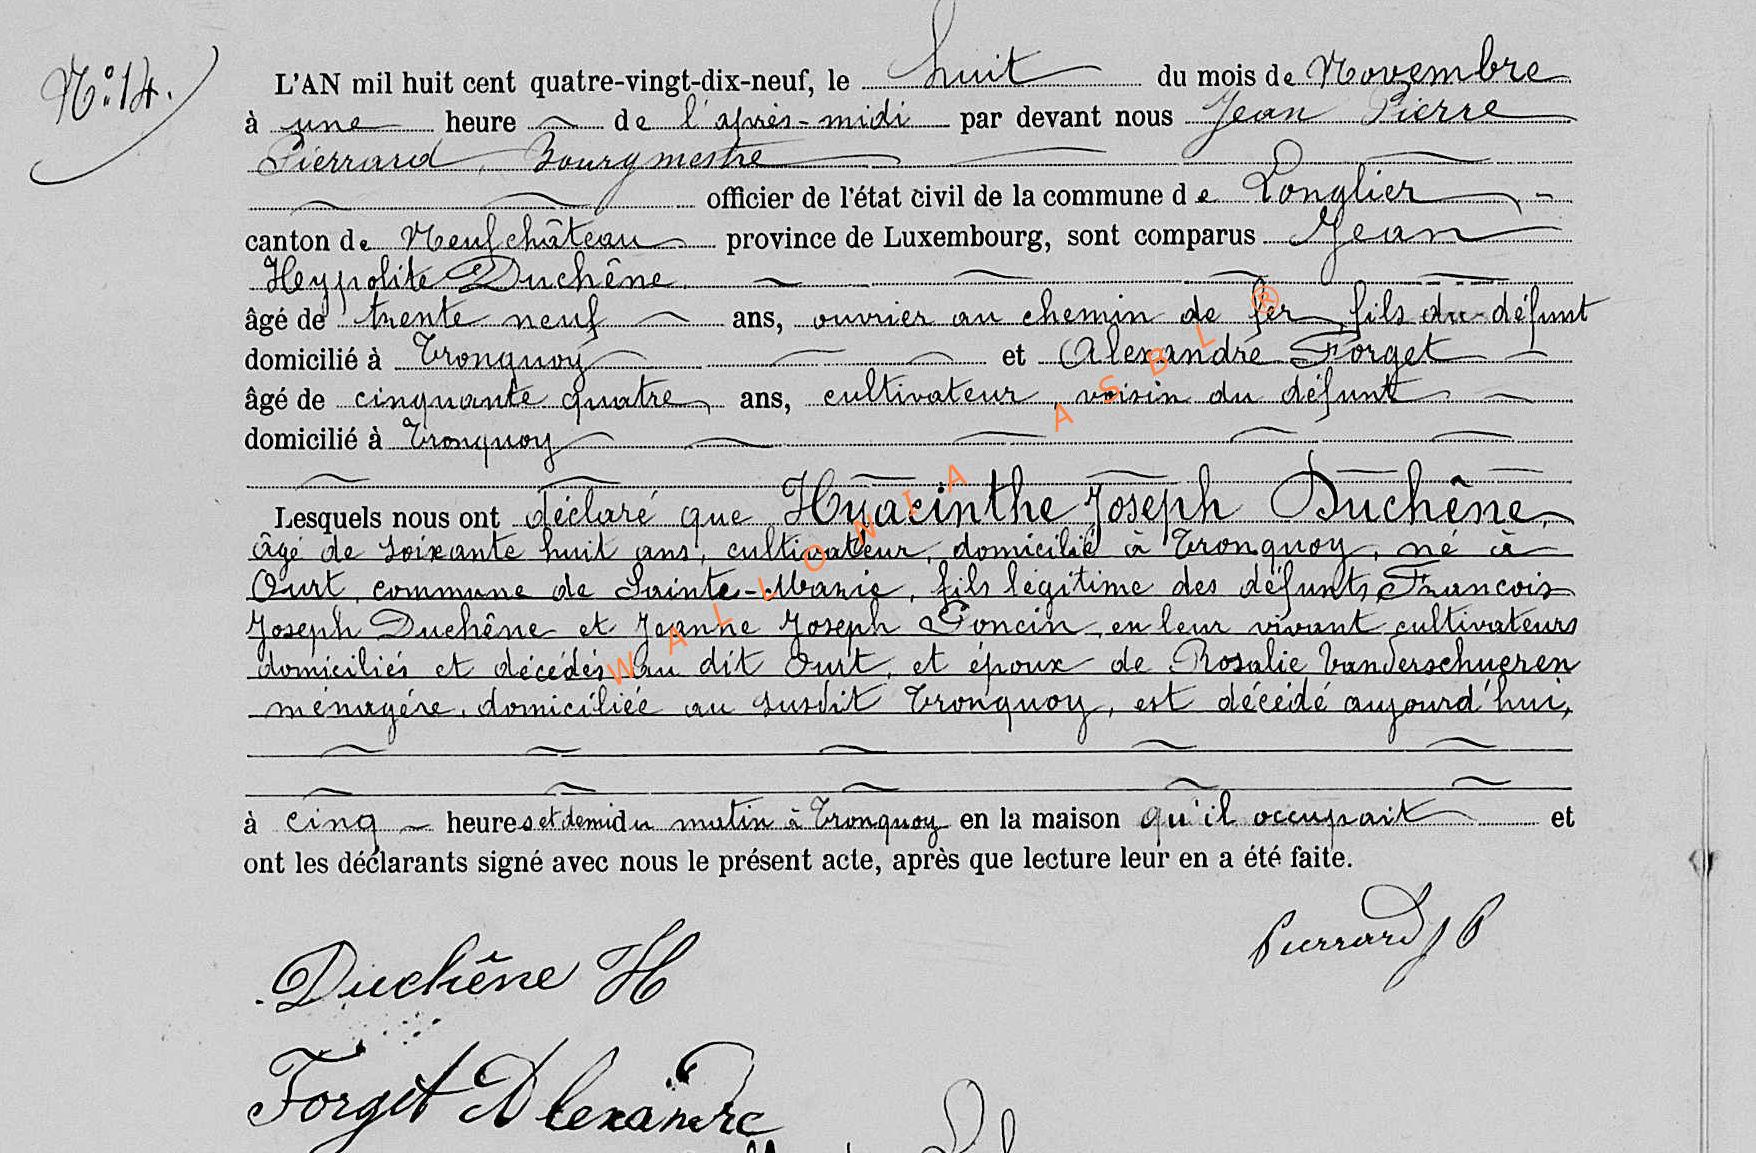 N° 14.
L'AN mil huit cent quatre-vingt-dix-neuf, le huit du mois de Novembre
à une heure de l'après-midi par devant nous Jean Pierre
Pierrard, Bourgmestre
officier de l'état civil de la commune de Longlier
canton de Neufchâteau province de Luxembourg, sont comparus Jean
Heypolite Duchêne
âgé de trente neuf ans, ouvrier au chemin de fer, fils du défunt
domicilié à Tronquoy et Alexandre Forget
âgé de cinquante quatre ans, cultivateur voisin du défunt
domicilié à Tronquoy
Lesquels nous ont déclaré que Hyacinthe Joseph Duchêne,
âgé de soixante huit ans, cultivateur, domicilié à Tronquoy, né à
Ourt, commune de Sainte-Marie, fils légitime des défunts François
Joseph Duchêne et Jeanne Joseph Poncin, en leur vivant cultivateurs
domiciliés et décédés au dit Ourt, et époux de Rosalie Vanderschueren
ménagère, domiciliée au susdit Tronquoy, est décédé aujourd'hui,
à cinq heures et demi du matin à Tronquoy en la maison qu'il occupait et
ont les déclarants signé avec nous le présent acte, après que lecture leur en a été faite.
Pierrard J P
Duchêne H
Forget Alexandre
WALLONIA ASBL ®